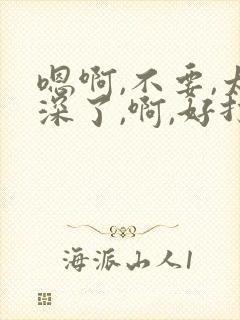 嗯啊,不要,太
深了,啊,好
海派山人1